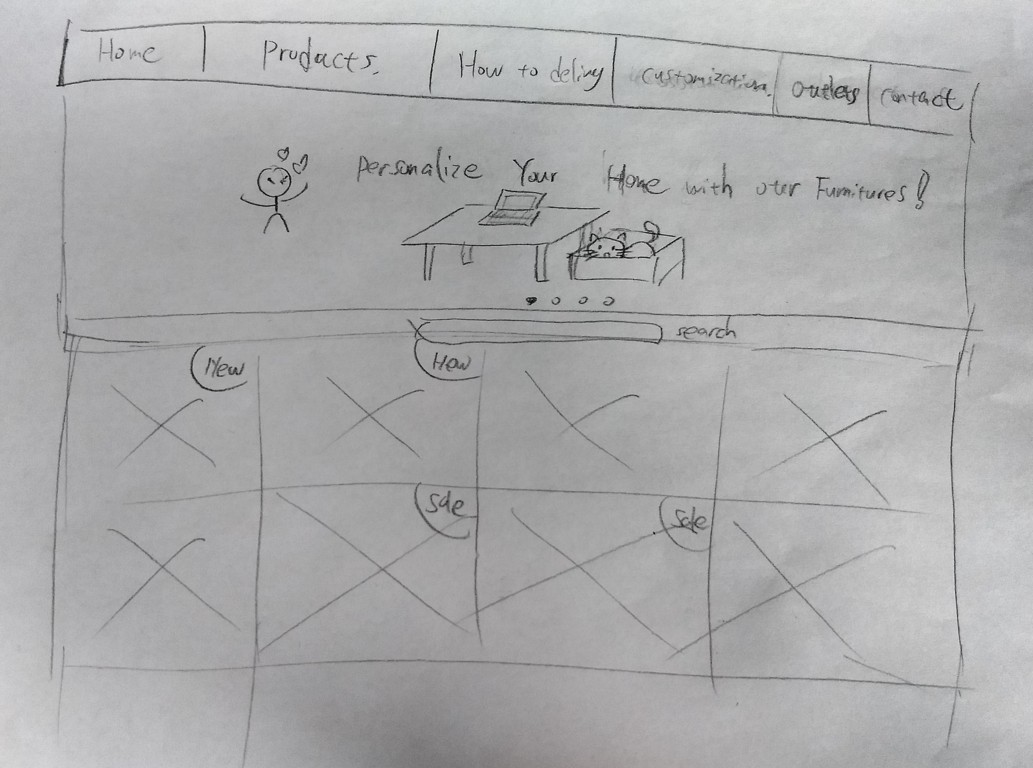 Home Products. How to delivy customization. outlets contact
Personalize Your Home with our Furnitures!
search
New New
Sale Sale